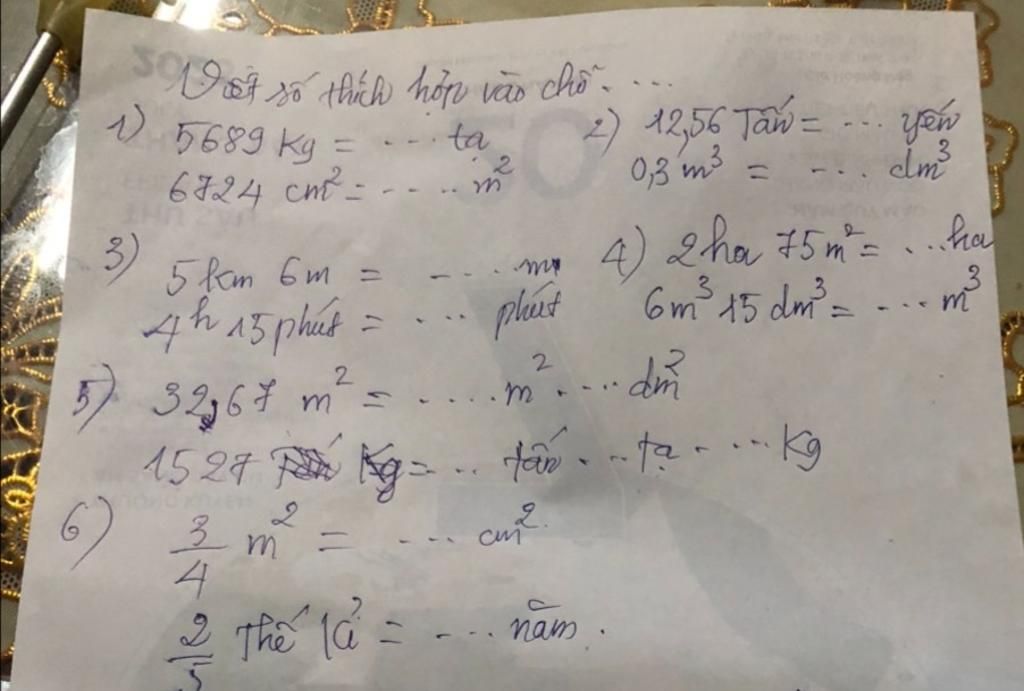 Viết số thích hợp vào chỗ. ...
1) 5689 Kg = ... tạ
6724 cm² = .... m²
2) 12,56 Tấn = ... yến
0,3 m³ = ... dm³
3) 5 km 6m = .... m
4h 15 phút = ... phút
4) 2 ha 75 m² = ... ha
6m³ 15 dm³ = .... m³
5) 32,67 m² = ..... m² .... dm²
1527 Kg = ... tấn ... tạ ... Kg
6) 3/4 m² = .... cm²
2/5 Thế kỉ = .... năm.